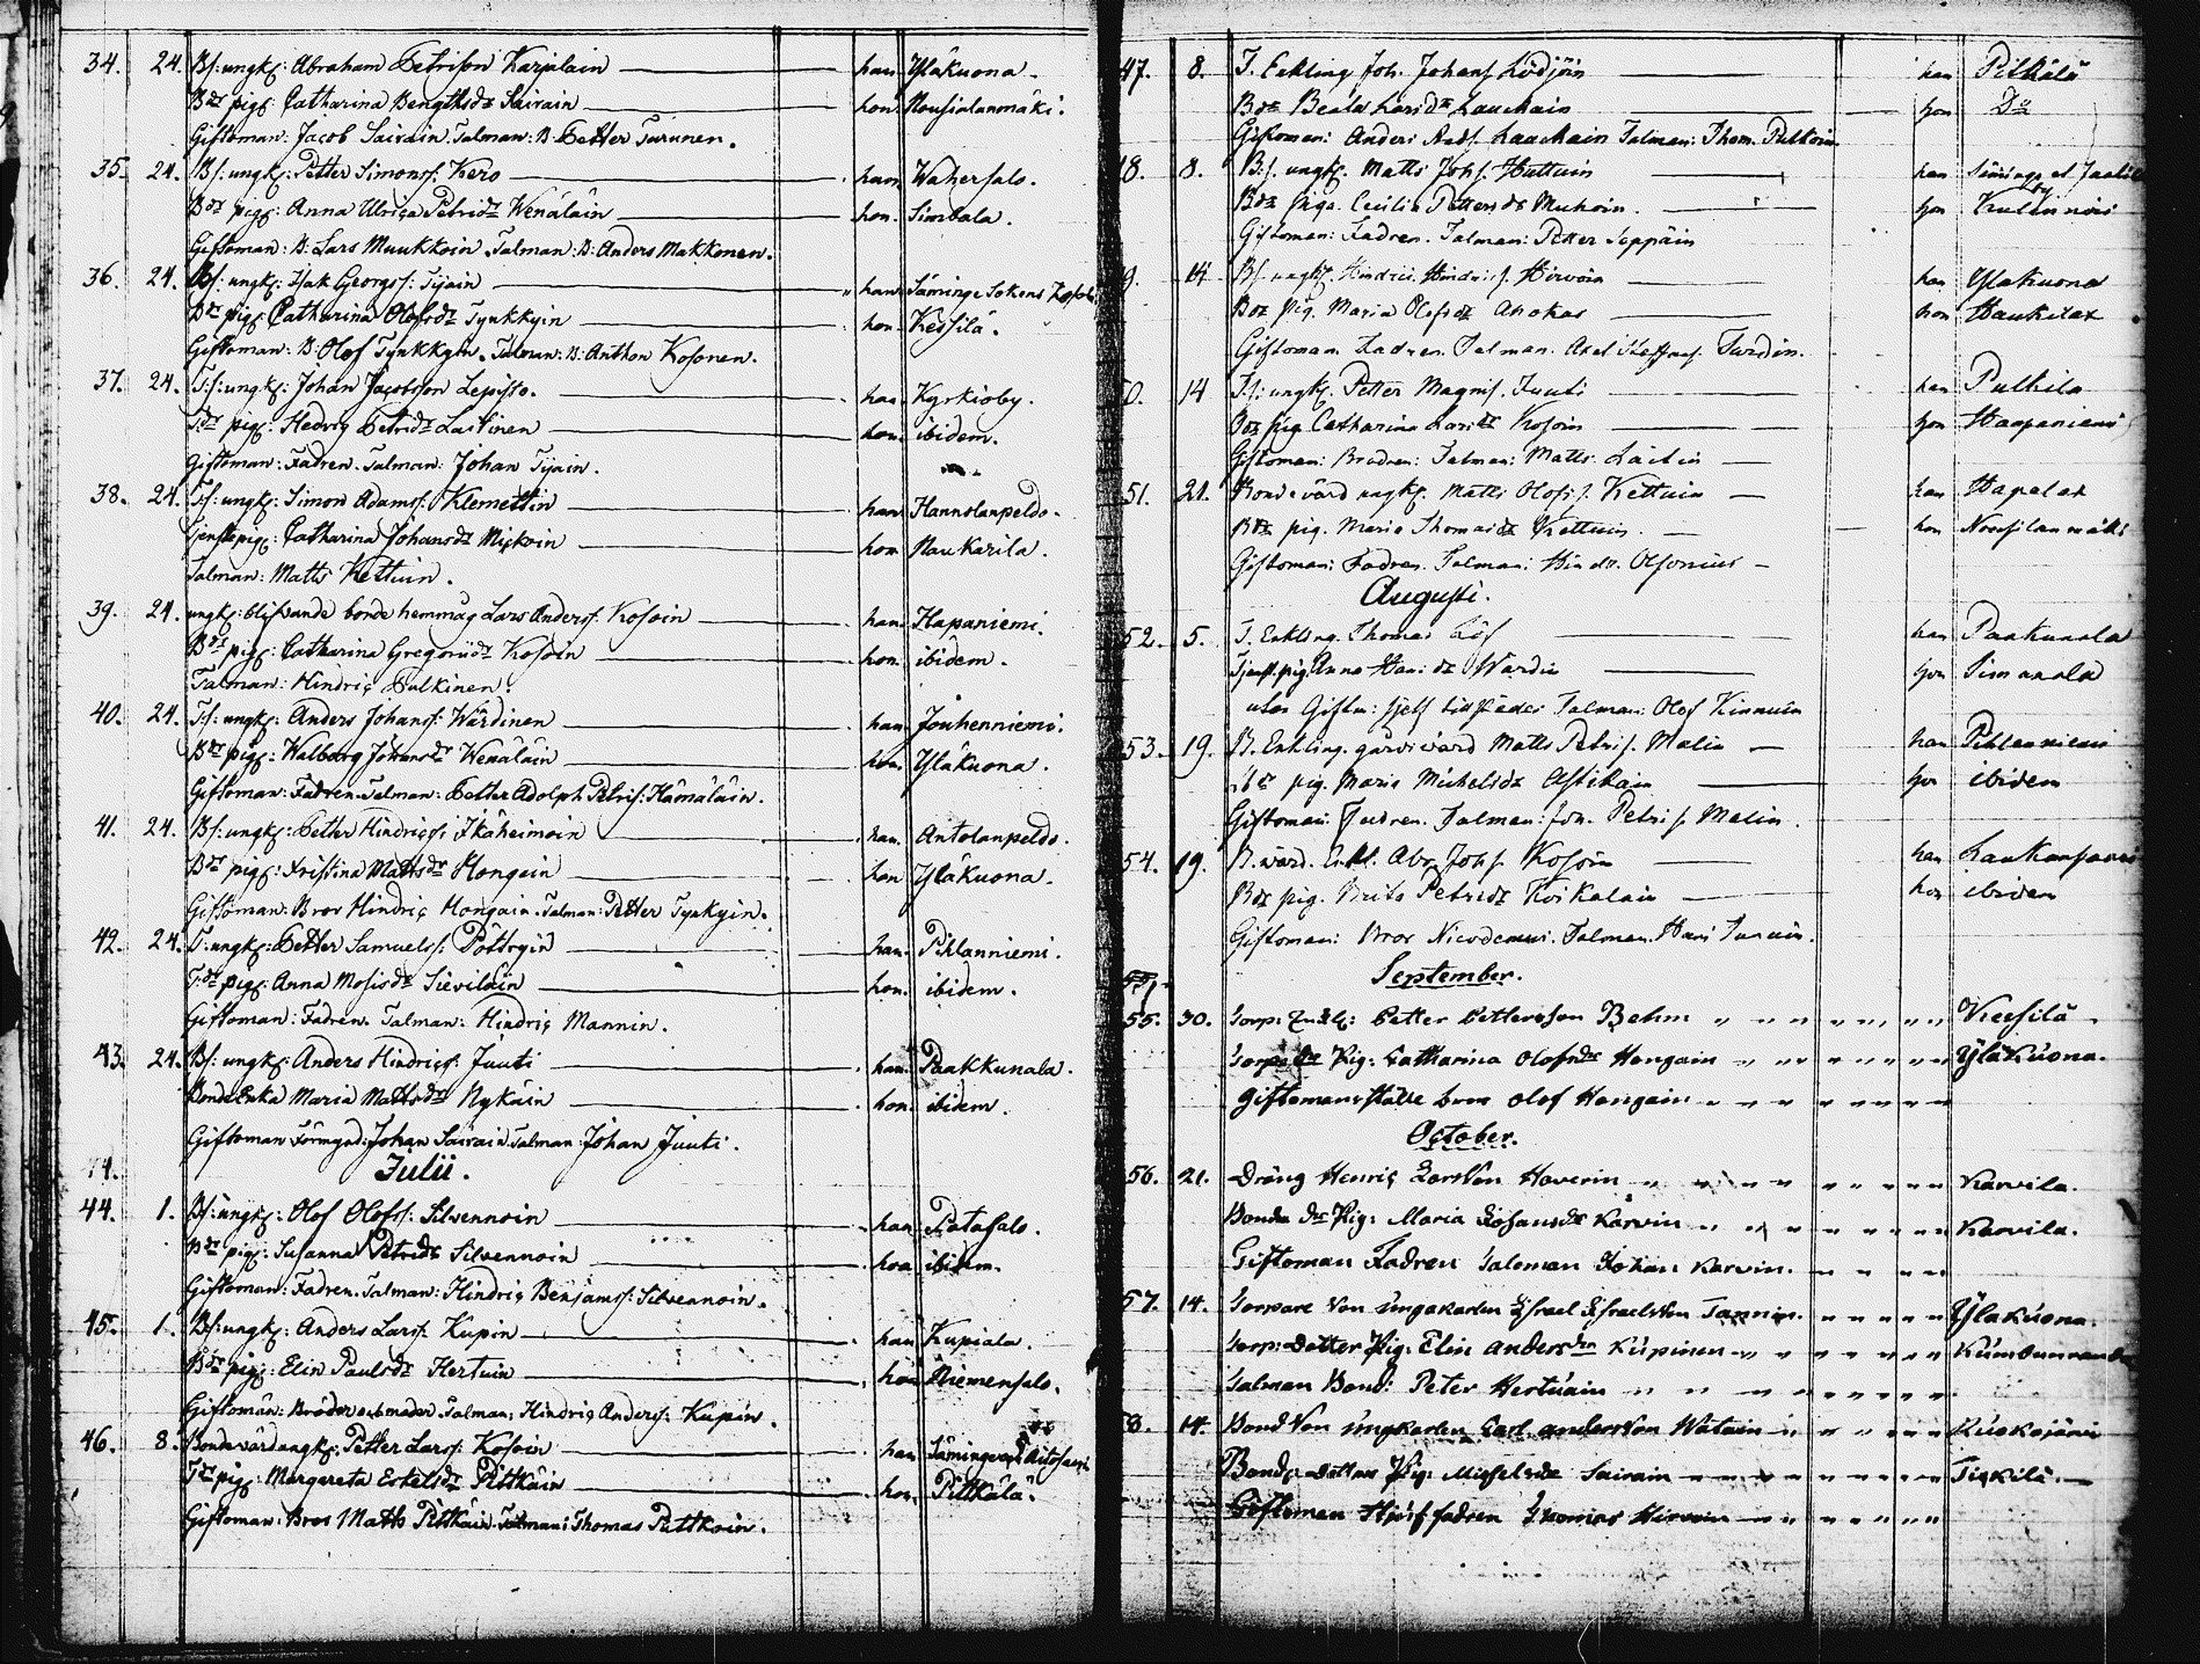 34. 24. Bs: ungk: Abraham Petrison Karjalain han Yläkuona.
Bdr pig: Catharina Bengtsdr Sairain hon Nousialanmäki.
Giftoman: Jacob Sairain. Talman: B. Petter Turunen.
35. 24. Bs: ungk: Petter Simonss: Kero han Wahersalo.
Bdr pig: Anna Ulrica Petridr Wenäläin hon. Simbala.
Giftoman: B: Lars Muukkoin. Talman: B: Anders Makkonen.
36. 24. Bs: ungk: Isak Georgss: Tijain han Säminge Sokens
Bdr pig: Catharina Olofsdr Tynkkyin hon Kessilä.
Giftoman: B: Olof Tynkkyin. Talman: B: Anthon Kosonen.
37. 24. Ts: ungk: Johan Jacobsson Lepisto. han Kyrkioby.
Tdr pig: Hedvig Petridr Laitinen hon ibidem.
Giftoman: Fadren. Talman: Johan Tijain.
38. 24. Ts: ungk: Simon Adamss: Klemettin han Hannolanpeldo.
Tjenstepig: Catharina Johansdr Mickoin hon Naukarila.
Talman: Matts Kettuin.
39. 24. ungk: blifvande bonde hemmåg Lars Anderss: Kosoin han Hapaniemi.
Bdr pig: Catharina Gregoriidr Kosoin hon ibidem.
Talman: Hindric Pulkinen.
40. 24. Ts: ungk: Anders Johanss: Wärdinen han Jouhenniemi.
Bdr pig: Walborg Johansdr Wenäläin hon. Yläkuona.
Giftoman: Fadren. Talman: Petter Adolph Petris: Hämäläin.
41. 24. Bs: ungk: Petter Hindricss: Ikäheimoin han. Antolanpeldo.
Bdr pig: Kristina Mattsdr Hongain hon Yläkuona.
Giftoman: Bror Hindric Hongain. Talman: Petter Tynkyin.
42. 24. T: ungk: Petter Samuelss: Pöttryin han. Pihlanniemi.
Tdr pig: Anna Mosisdr Sieviläin hon. ibidem.
Giftoman: Fadren. Talman: Hindric Mannin.
43. 24. Bs: ungk: Anders Hindricss: Juuti han Paakkunala.
Bonde Enka Maria Mattsdr Nykäin hon. ibidem.
Giftoman Förmynd: Johan Sairain. Talman: Johan Juuti.
Julii.
44. 1. Bs: ungk: Olof Olofss: Silvennoin han Patasalo.
Bdr pig: Susanna Petridr Silvennoin hon ibidem.
Giftoman: Fadren. Talman: Hindric Benjamss: Silvennoin.
45. 1. Bs: ungk: Anders Larss: Kupin han Kupiala.
Bdr pig: Elin Paulsdr Hertuin hon Niemensalo.
Giftoman: Talman: Hindric Anderss: Kupin.
46. 8. Bondevärd ungk: Petter Larss: Kosoin han
Tdr pig: Margareta Eskelsdr Pittkäin hon. Pittkälä.
Giftoman: Bror Matts Pittkäin. Talman: Thomas Puttkoin.
47. 8. T. Enkling Joh. Johans. Lödjöin han Pitkälä
Bdr Beata Larsdr Lauckain hon Do
Giftoman: Anders Ands. Lauckain Talman: Thom. Puttoin
48. 8. Bs. ungk. Matts Johs. Huttuin han
Bdr piga. Cecilia Pettersdr Muhoin. hon
Giftoman: Fadren. Talman: Petter Seppäin
49. 14 Bs ungk. Hindric Hindrics. Hirvoin han Ylakuona
Bdr Pig. Maria Olofsdr Ahokas hon Haukilax
Giftoman Fadren. Talman. Axel Turdin.
50. 14 Ts: ungk. Petter Magnis. Juuti han Pulkila
Bdr pig Catharina Larsdr Kosoin hon Haapaniemi
Giftoman: Brodren: Talman: Matts. Laitin
51. 21. Bondevärd ungk. Matts Olofss. Kettuin han Hapalax
Bdr pig. Maria Thomasdr Kettuin. hon
Giftoman: Fadren. Talman: Hindr. Olsonius
Augusti.
52. 5. T. Enkling. Thomas Löf han Paakunala
Tjenst. pig. Anna Hansdr Wardin hon Simanala
utan Giftm: sjelf tillstädes Talman: Olof Kinnuin
53. 19. B. Enkling. gårdsvärd Matts Petris. Malin han Pihlanniemi
pig. Maria Michelsdr Astikain hon ibidem
Giftoman: Fadren. Talman: Joh. Petris. Malin.
54. 19. B. wärd. Enkl. Abr. Johs. Kosoin han Laukansaari
Bdr pig. Brita Petridr Koikalain hon ibidem
Giftoman: Bror Nicodemus. Talman.
September.
55. 30. Sorp: Enkl: Petter Pettersson Behm " " " " " " " " Kessilä
Pig: Catharina Olofsdr Hongain " " " " " " " " Yläkuona.
Giftomansställe bror Olof Hongain " " " " " " " "
October.
56. 21. Dräng Henric Larsson Haverin " " " " " " " " Karvila.
Bonde dr Pig: Maria Johansdr Karvin " " " " " " " " Karvila.
Giftoman Fadren Taloman Johan Karvin. " " " "
57. 14. Sorpare Son Ungakarlen Israel Israelsson Tannin. " " " " " Yläkuona.
Sorp: Dotter Pig: Elin Andersdr Kupinen " " " " " "
Talman Bond: Peter Hertuain " " " " " " " "
58. 14. Bond Son Ungkarlen Carl Andersson Wätain " " " " " "
Bond: Dotter Pig: Michelsdr Sairain " " " " " " " "
Giftoman Stjuf fadren Thomas Hirvoin " " " " " "